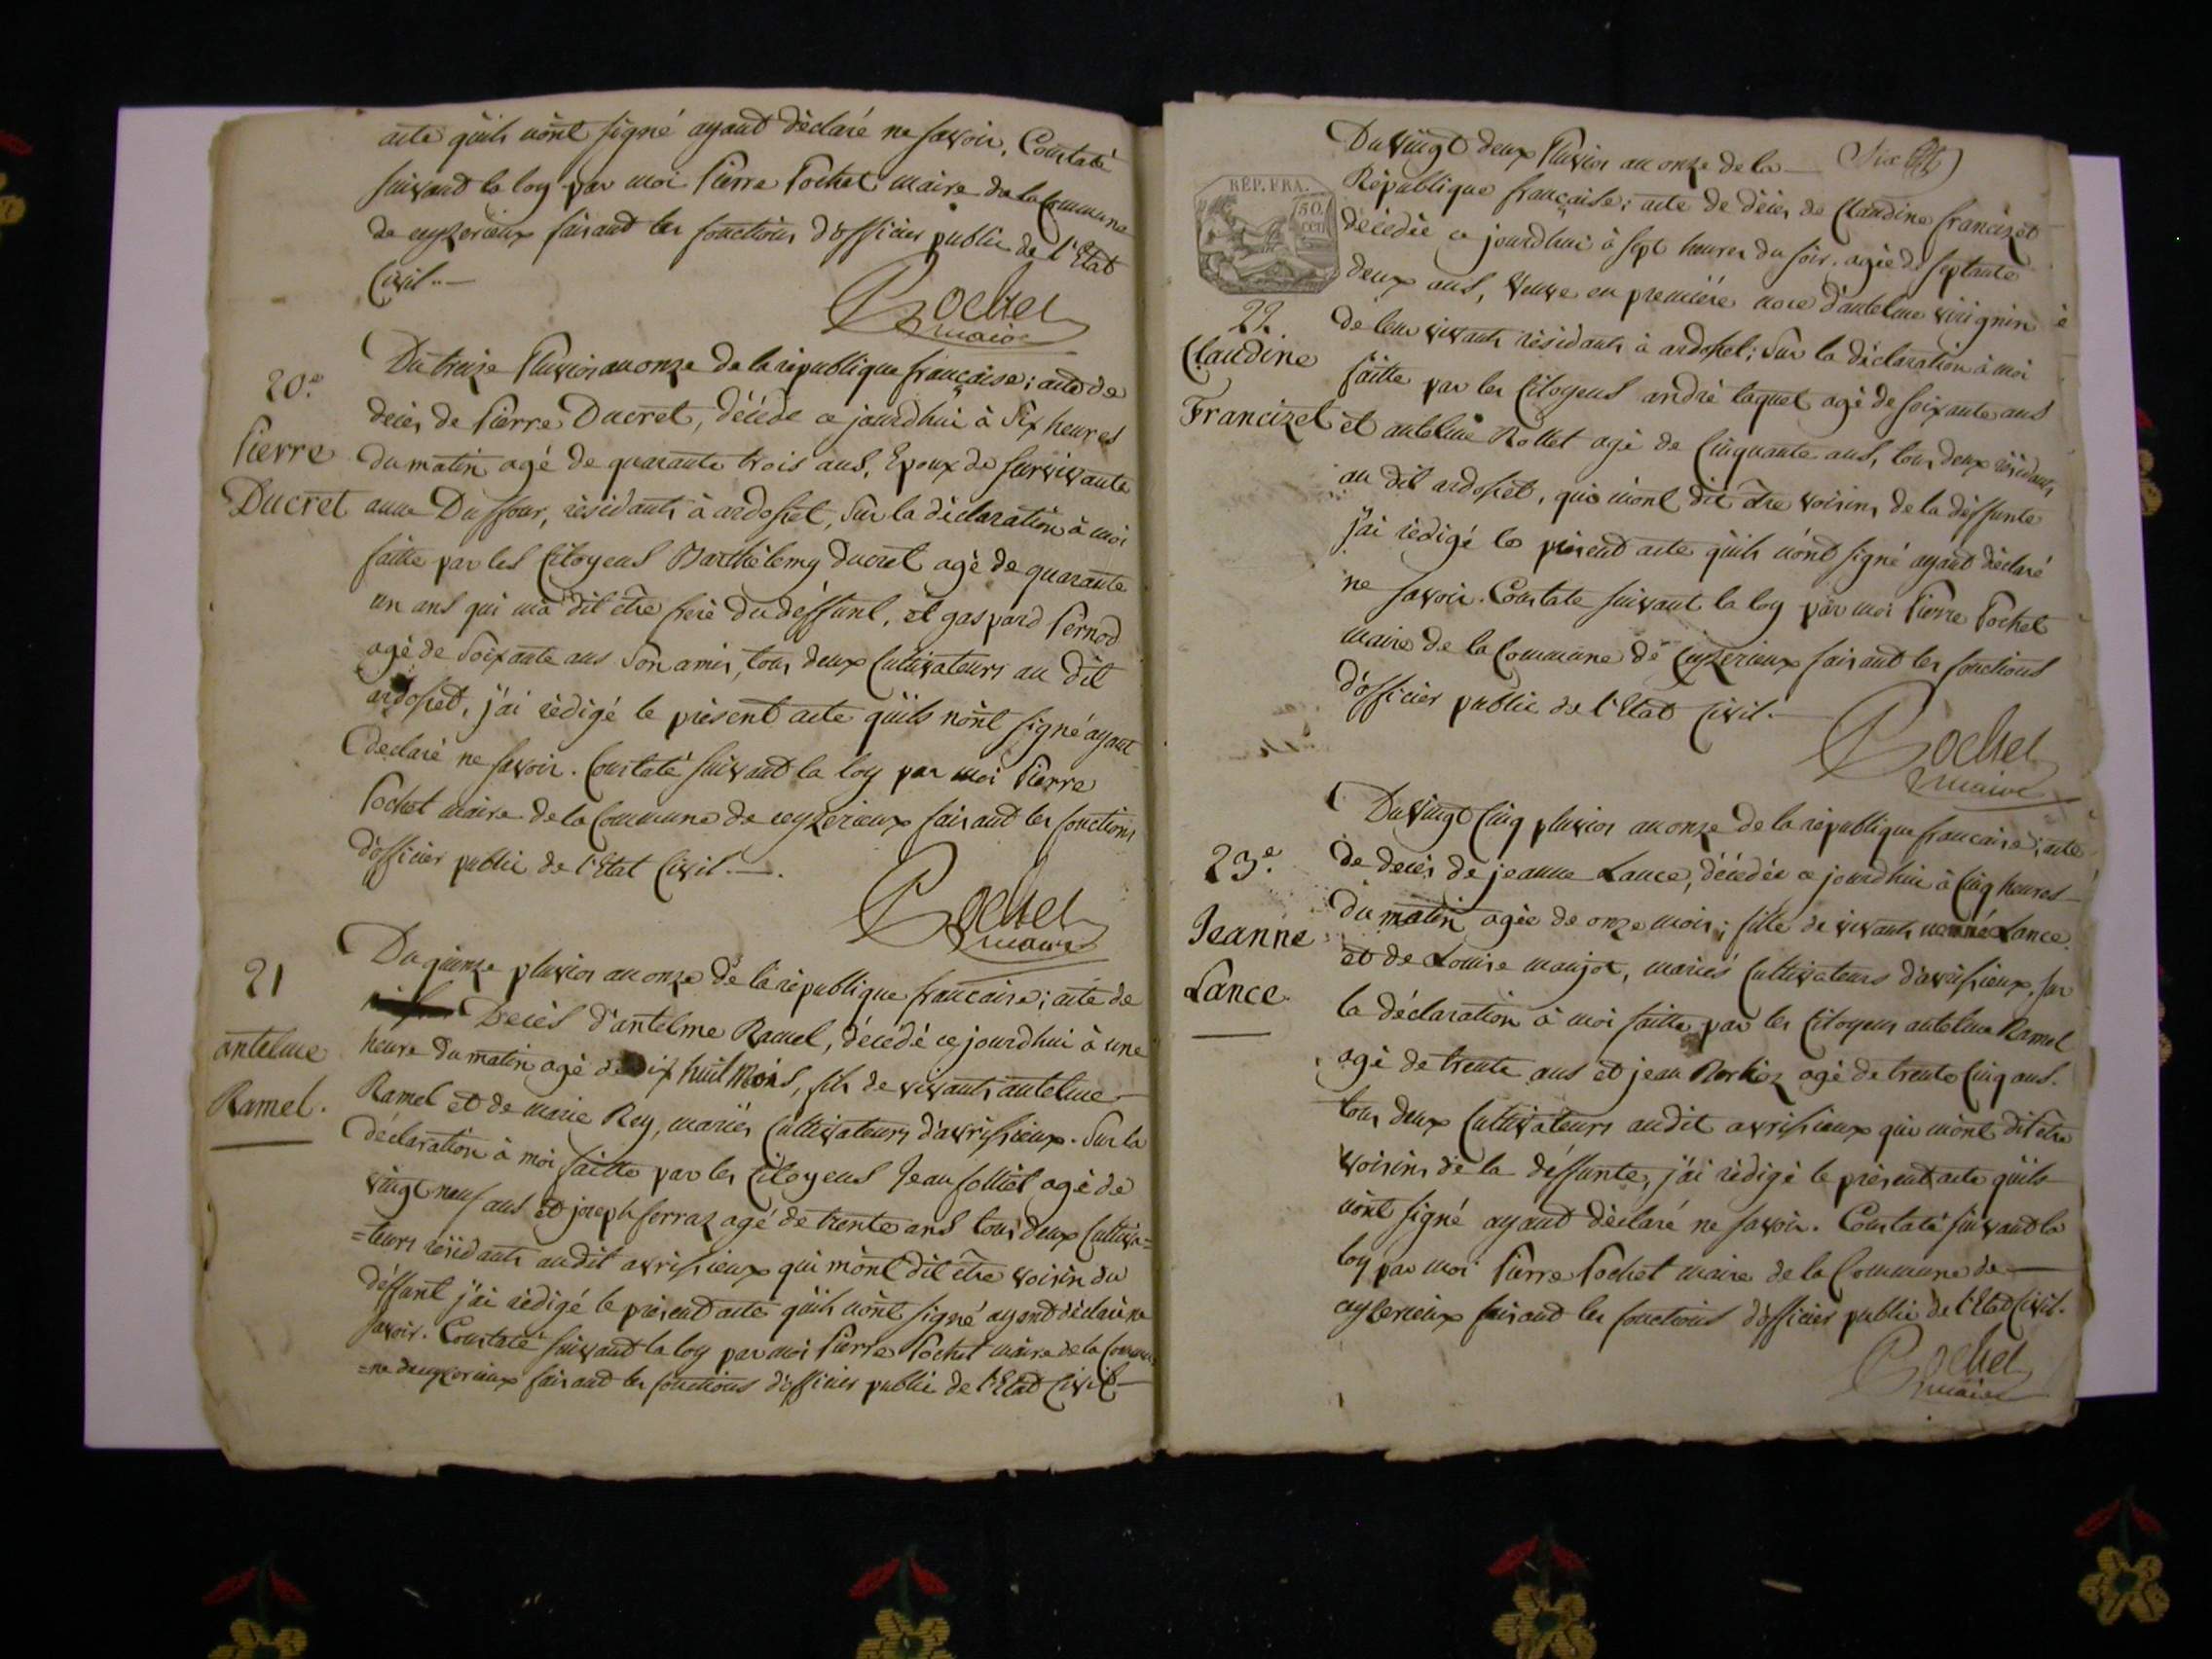 acte quils n'ont signé ayant déclaré ne savoir. Constaté
suivant la loy par moi Pierre Pochet maire de la Commune
de ceyzerieux faisant les fonctions d'officier public de l'Etat
Civil. —
Pochet
maire
20.e
Pierre
Ducret
Du treize Pluvios an onze de la république française; acte de
deces de Pierre Ducret, décédé ce jourdhui à Six heures
du matin agé de quarante trois ans, Epoux de survivante
anne Duffour, résidants à ardosset, Sur la déclaration à moi
faitte par les Citoyens Barthélemy ducret agé de quarante
un ans qui ma dit être frere du déffunt, et gaspard Pernod
agé de Soixante ans Son amis, tous deux Cultivateurs au dit
ardosset, j'ai rédigé le présent acte quils n'ont signé ayant
declaré ne savoir. Constaté suivant la loy par moi Pierre
Pochet maire de la Commune de ceyzerieux faisant les fonctions
d'officier public de l'Etat Civil. —.
Pochet
maire
21
antelme
Ramel.
Du quinze pluvios an onze de la république française; acte de
Decès d'antelme Ramel, décédé ce jourdhui à une
heure du matin agé de dix huit mois, fils de vivants antelme
Ramel et de marie Rey, mariés Cultivateurs d'avrissieux. Sur la
déclaration à moi faitte par les Citoyens Jean folliet agé de
vingt neuf ans et joseph ferraz agé de trente ans tous deux Cultiva=
=teurs résidants audit avrissieux qui m'ont dit être voisin du
déffunt j'ai rédigé le présent acte quils n'ont signé ayant déclaré ne
savoir. Constaté suivant la loy par moi Pierre Pochet maire de la Commu
=ne de ceyzerieux faisant les fonctions d'officier public de l'Etat Civil —
Six
RÉP. FRA.
50.
cen
22.
Claudine
Francizet
Du vingt deux Pluvios an onze de la —
République française; acte de décès de Claudine francizet
décédée ce jourdhui à sept heures du soir. agée de septante
deux ans, veuve en première noce d'antelme virignin
de leur vivants résidants à ardosset; Sur la déclaration à moi
faitte par les Citoyens andré taquet agé de soixante ans
et antelme Rollet agé de Cinquante ans, tous deux résidants
au dit ardosset, qui m'ont dit être voisins de la déffunte
j'ai rédigé le présent acte quils n'ont signé ayant déclaré
ne savoir. Constate suivant la loy par moi Pierre Pochet
maire de la Commune de Ceyzerieux faisant les fonctions
d'officier public de l'Etat Civil. —
Pochet
maire
23.e
Jeanne
Lance.
Du vingt Cinq pluvios an onze de la république francaise; acte
de decès de jeanne Lance, décédée ce jourdhui à Cinq heures
du matin agée de onze mois; fille de vivants Lance
et de Louise maujot, mariés Cultivateurs d'avrissieux. sur
la déclaration à moi faitte par les Citoyens antelme Ramel
agé de trente ans et jean Berlioz agé de trente Cinq ans.
tous deux Cultivateurs audit avrissieux qui m'ont dit être
voisins de la déffunte, j'ai rédigé le présent acte quils
n'ont signé ayant déclaré ne savoir. Constaté suivant la
loy par moi Pierre Pochet maire de la Commune de —
ceyzerieux faisant les fonctions d'officier public de l'Etat Civil.
Pochet
maire